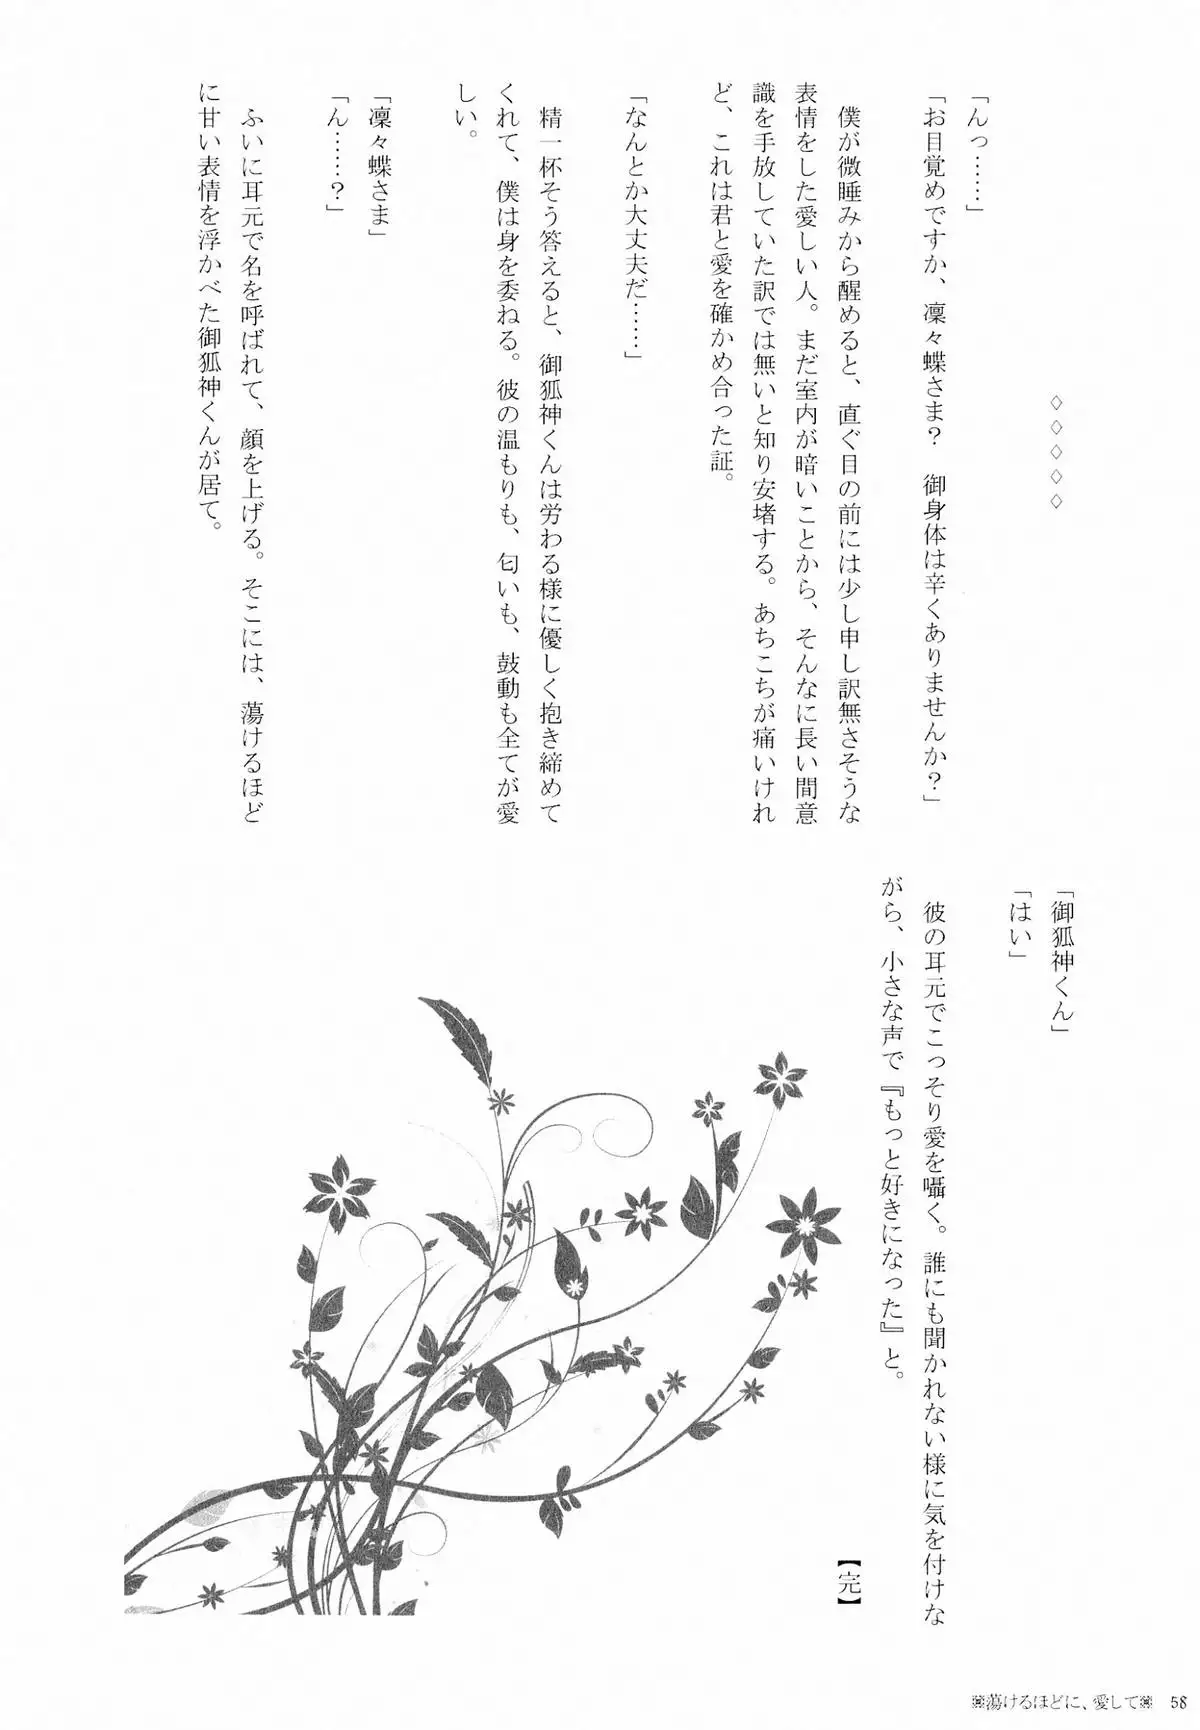 ◇◇◇◇◇
「んっ……」
「お目覚めですか、凜々蝶さま？　御身体は辛くありませんか？」
　僕が微睡みから醒めると、直ぐ目の前には少し申し訳無さそうな
表情をした愛しい人。まだ室内が暗いことから、そんなに長い間意
識を手放していた訳では無いと知り安堵する。あちこちが痛いけれ
ど、これは君と愛を確かめ合った証。
「なんとか大丈夫だ……」
　精一杯そう答えると、御狐神くんは労わる様に優しく抱き締めて
くれて、僕は身を委ねる。彼の温もりも、匂いも、鼓動も全てが愛
しい。
「凜々蝶さま」
「ん……？」
　ふいに耳元で名を呼ばれて、顔を上げる。そこには、蕩けるほど
に甘い表情を浮かべた御狐神くんが居て。
「御狐神くん」
「はい」
　彼の耳元でこっそり愛を囁く。誰にも聞かれない様に気を付けな
がら、小さな声で『もっと好きになった』と。
【完】
※蕩けるほどに、愛して※　58